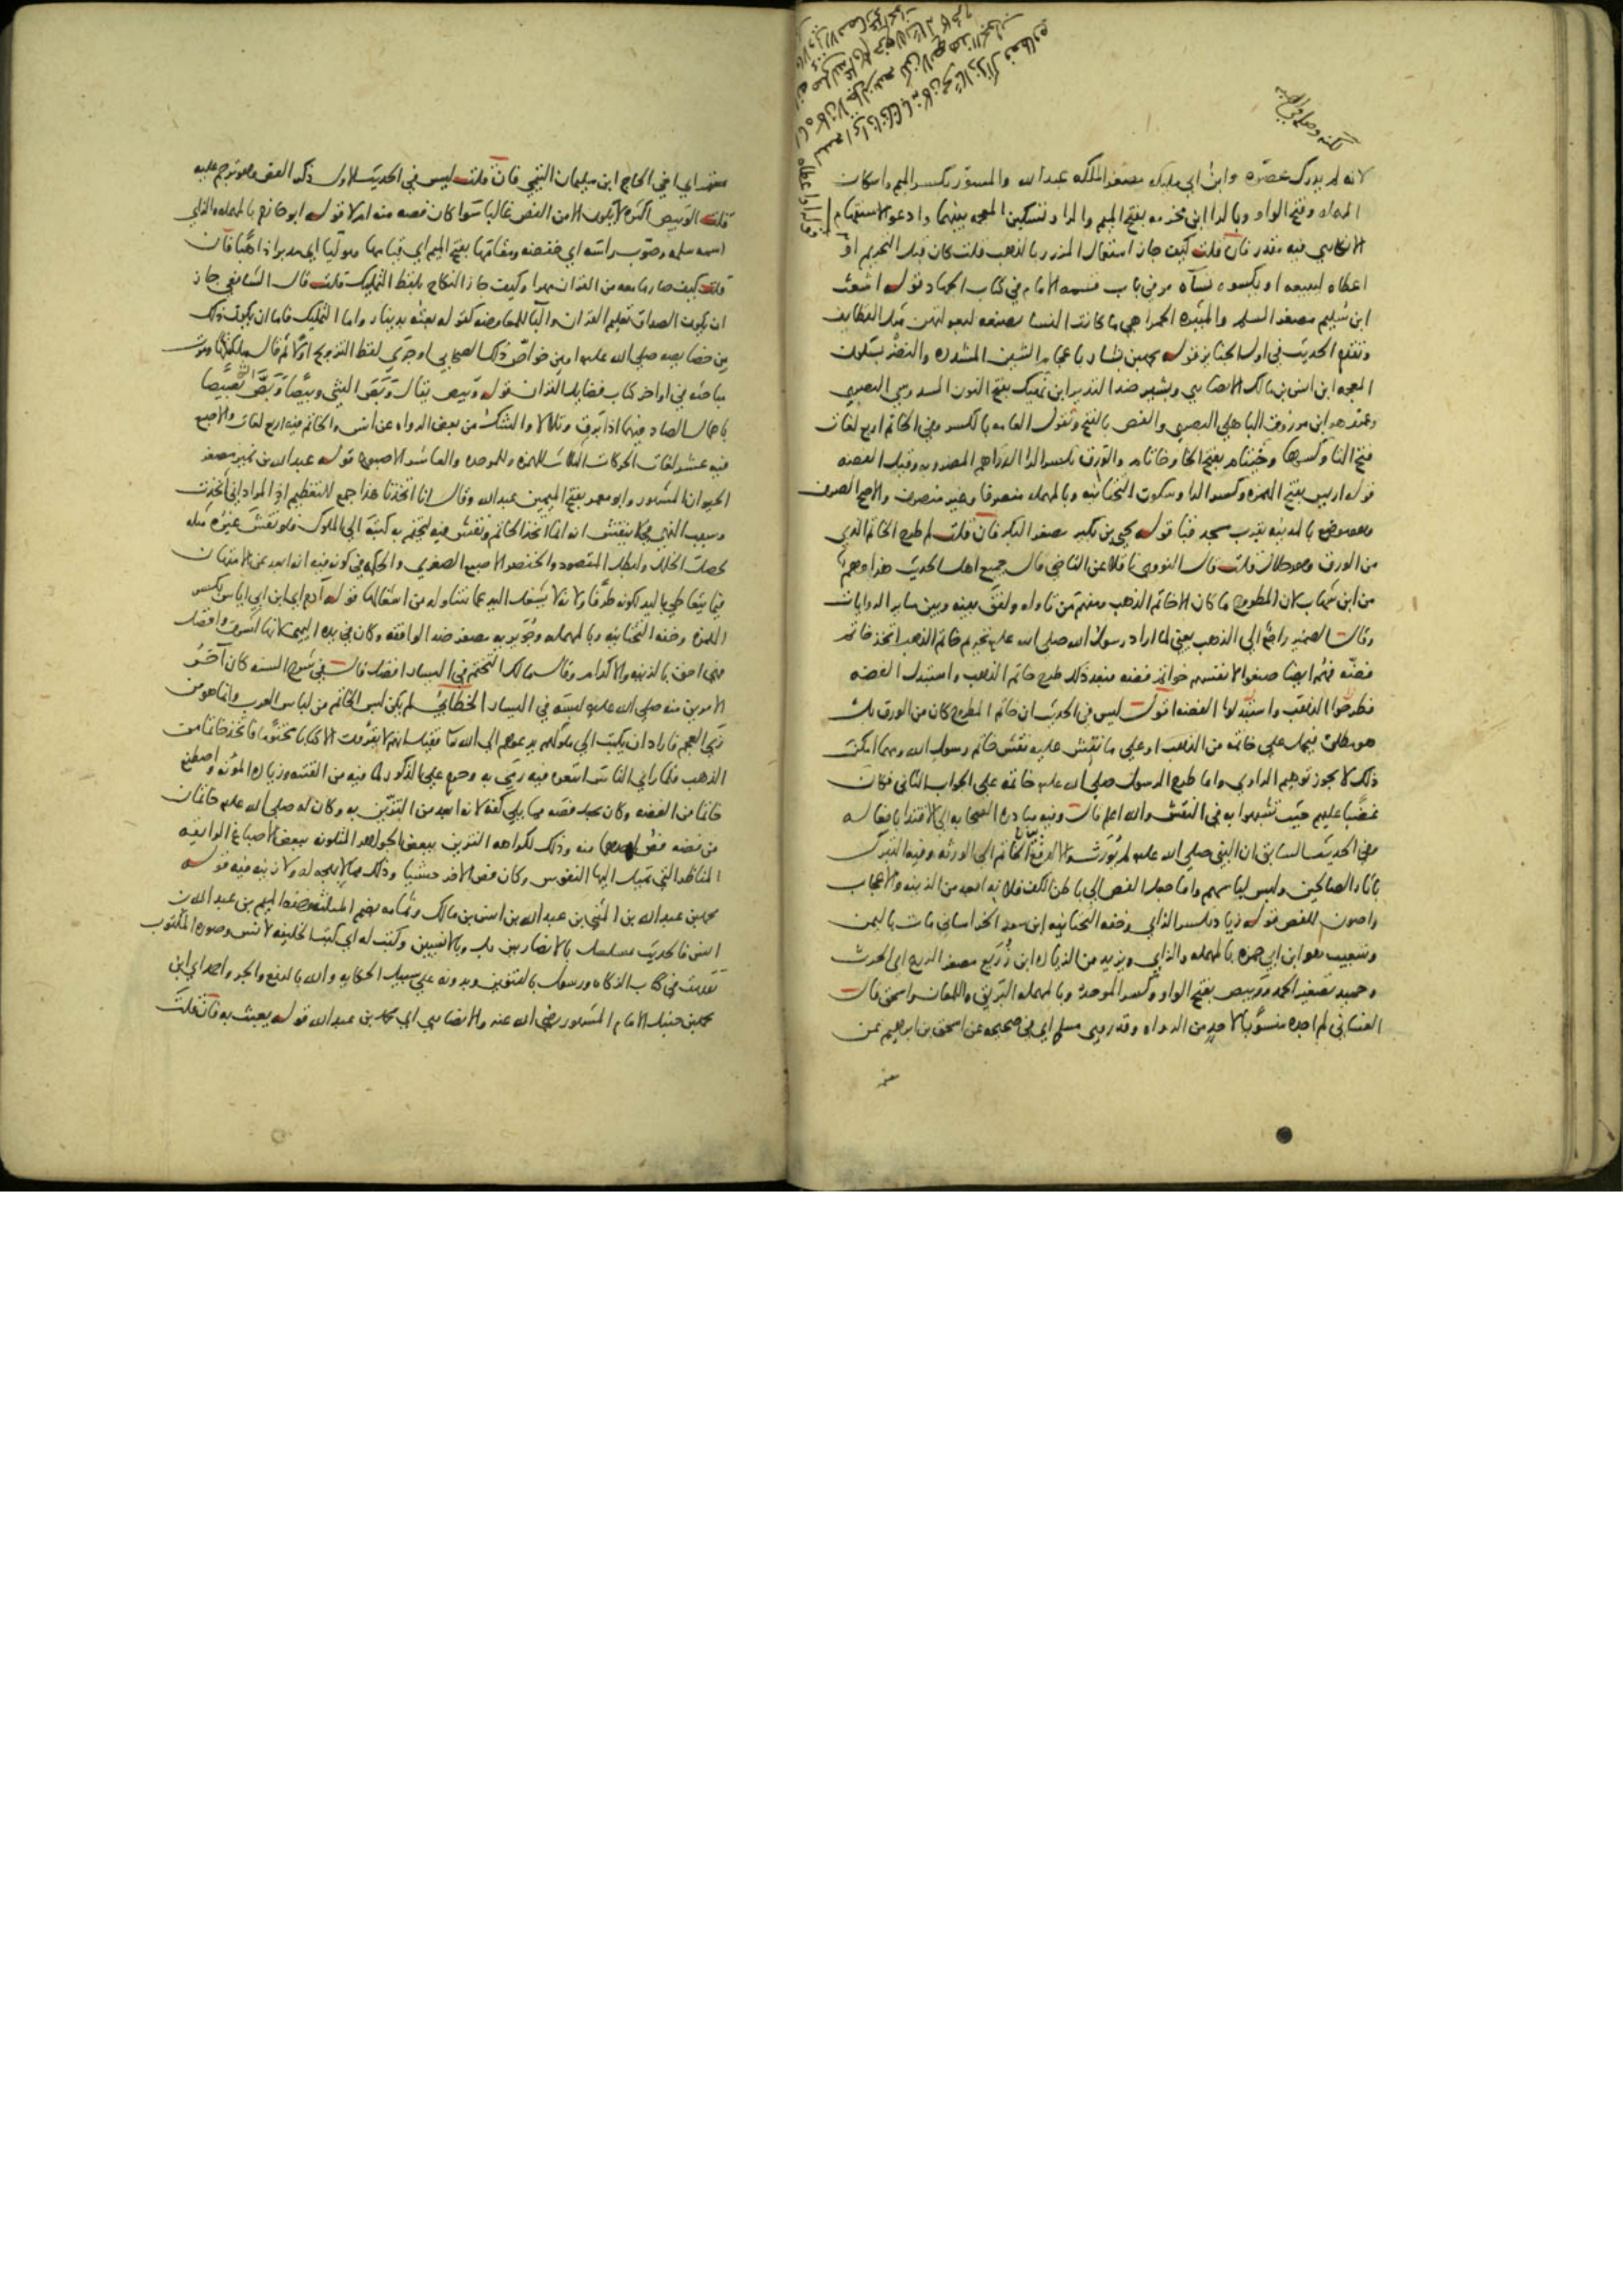 لانه لم يدرك عصره وابن ابي مليكه مصغر الملكه عبدالله والمسور بكسر الميم واسكان
المهمله وفتح الواو وبالرا ابن مخرمه بفتح الميم والرا وتسكين المعجمه بينهما وادعو الاستفهام
الانكاري فيه مقدر فان قلت كيف جاز استعمال المزرر بالذهب قلت كان قبل التحريم او
اعطاه ليبيعه او يكسوه نسآه مر في باب قسمه الامام في كتاب الجهاد قوله اشعث
ابن سُليم مصغر السلم والميثره الحمرا هي ما كانت النسا تصنعه لبعولتهن مثل القطايف
وتقدم الحديث في اول الجنايز قوله محمد بن بشار باعجام الشين المشدده والنضر بسكون
المعجمه ابن انس بن مالك الانصاري وبشير ضد النذير ابن نهيك بفتح النون السدوسي البصري
وعمرو هو ابن مرزوق الباهلي البصري والفص بالفتح وتقول العامه بالكسر وفي الخاتم اربع لغات
فتح التا وكسرها وخيتام بفتح الخا وخاتام والورق بكسر الرا الدراهم المضروبه وقيل الفضه
قوله اريس بفتح الهمزه وكسر الرا وسكون التحتانيه وبالمهمله منصرفا وغير منصرف والاصح الصرف
وهو موضع بالمدينه بقرب مسجد قبا قوله يحيي بن بكير مصغر البكر فان قلت لم طرح الخاتم الذي
من الورق وهو حلال قلت قال النووي ناقلا عن القاضي قال جميع اهل الحديث هذا وهم
من ابن شهاب لان المطروح ما كان الا خاتم الذهب ومنهم من تاوله ولفق بينه وبين ساير الروايات
وقال الضمير راجع الي الذهب يعني لما اراد رسول الله صلى الله عليه تحريم خاتم الذهب اتخذ خاتم
فضّه فهم ايضا صنعوا لانفسهم خواتم فضه فبعد ذلك طرح خاتم الذهب واستبدل الفضه
فطرحوا الذهب واستبدلوا الفضه اقول ليس في الحديث ان خاتم المطروح كان من الورق بل
هو مطلق فيحمل علي خاتمه من الذهب او علي ما نقش عليه نقش خاتم رسول الله ومهما امكن
ذلك لا يجوز توهيم الراوي واما طرح الرسول صلى الله عليه خاتمه علي الجواب الثاني فكان
غضبا عليهم حيث تشبهوا به في النقش والله اعلم قال وفيه مبادره الصحابه الي الاقتدا بافعاله
وفي الحديث السابق ان النبي صلى الله عليه لم يورث والا لدفع الخاتم الي الورثه وفيه التبرك
باثار الصالحين ولبس لباسهم واما جعل الفص الي باطن الكف فلانه ابعد من الزينه والاعجاب
واصون للفص قوله زياد بكسر الزاي وخفه التحتانيه ابن سعد الخراساني مات باليمن
وشعيب هو ابن ابي حمزه بالمهمله والزاي ويزيد من الزياده ابن زُريع مصغر الزرع اي الحرث
وحميد تصغير الحمد ووبيص بفتح الواو وكسر الموحده وبالمهمله البريق واللمعان واسحق قال
الغساني لم اجده منسوبا لاحد من الرواه وقد روي مسلم اي في صحيحه عن اسحق بن ابراهيم عن
معتمر
معتمر اي اخي الحاج ابن سليمان التيمي فان قلت ليس في الحديث الاول ذكر الفص وهو ترجم عليه
قلت الوبيص اكثره لا يكون الا من الفص غالبا سوا كان فصه منه ام لا قوله ابو حازم بالمهمله والزاي
اسمه سلمه وصوّب راسه اي خفضه ومقامها بفتح الميم اي قيامها وموليا اي مدبرا ذاهبا فان
قلت كيف صار ما معه من القران مهرا وكيف جاز النكاح بلفظ التمليك قلت قال الشافعي جاز
ان يكون الصداق تعليم القران والبا للمعاوضه كقوله بعته بدينار واما التمليك فاما ان يكون ذلك
من خصايصه صلى الله عليه او من خواص ذلك الصحابي او جري لفظ التزويج اولا ثم قال ملكتكها ومرت
مباحثه في اواخر كتاب فضايل القران قوله وبيص يقال وبص الشي وبيصا وبص بصيصا
باهمال الصاد فيهما اذا برق وتلالا والشك من بعض الرواه عن انس والخاتم فيه اربع لغات والاصبع
فيه عشر لغات الحركات الثلاث للهمزه وللموحده والعاشر الاصبوع قوله عبدالله بن نمير مصغر
الحيوان المشهور وابو معمر بفتح الميمين عبدالله وقال انا اتخذنا هذا جمع للتعظيم اذ المراد اني اتخذت
وسبب النهي فلا ينقش انه انما اتخذ الخاتم ونقش فيه ليختم به كتبه الي الملوك فلو نقش غيره مثله
لحصل الخلل ولبطل المقصود والخنصر الاصبع الصغري والحكمه في كونه فيه انه ابعد عن الامتهان
فيما يتعاطي باليد لكونه طرفا ولانه لا يشغل اليد عما تتناوله من اشغالها قوله آدم ابن ابي اياس بكسر
الهمزه وخفه التحتانيه وبالمهمله وجويريه مصغر ضد الواقفه وكان في يده اليمني لانها اشرف وافضل
فهي احق بالزينه والاكرام وقال مالك التختم في اليسار افضل قال في شرح السنه كان آخر
الامرين منه صلى الله عليه لبسه في اليسار الخطابي لم يكن لبس الخاتم من لباس العرب وانما هو من
زي العجم فاراد ان يكتب الي ملوكهم يدعوهم الي الله تعا فقيل انهم لا يقرون الا كتابا مختوما فاتخذ خاتما من
الذهب فلما راي الناس اتبعوه فيه رمي به وحرم علي الذكور لما فيه من الفتنه وزياده المؤنه واصطنع
خاتما من الفضه وكان يجعل فصه مما يلي كفه لانه ابعد من التزين به وكان له صلى الله عليه خاتمان
من فضه فص احدهما منه وذلك لكراهه التزين ببعض الجواهر المتلونه ببعض الاصباغ الرايقه
المناظر التي تميل اليها النفوس وكان فص الاخر حبشيا وذلك مما لا بهجه له ولا زينه فيه قوله
محمد بن عبدالله بن المثني بن عبدالله بن انس بن مالك وثمامه بضم المثلثه وخفه الميم بن عبدالله بن
انس فالحديث مسلسل بالانصاريين بل وبالانسيين وكتب له اي كتب الخليفه لانس وصوره المكتوب
تقدمت في كتاب الزكاه ورسول بالتنوين وبدونه علي سبيل الحكايه والله بالرفع والجر واحمد اي ابن
محمد بن حنبل الامام المشهور رضي الله عنه والانصاري اي محمد بن عبدالله قوله يعبث به فان قلت